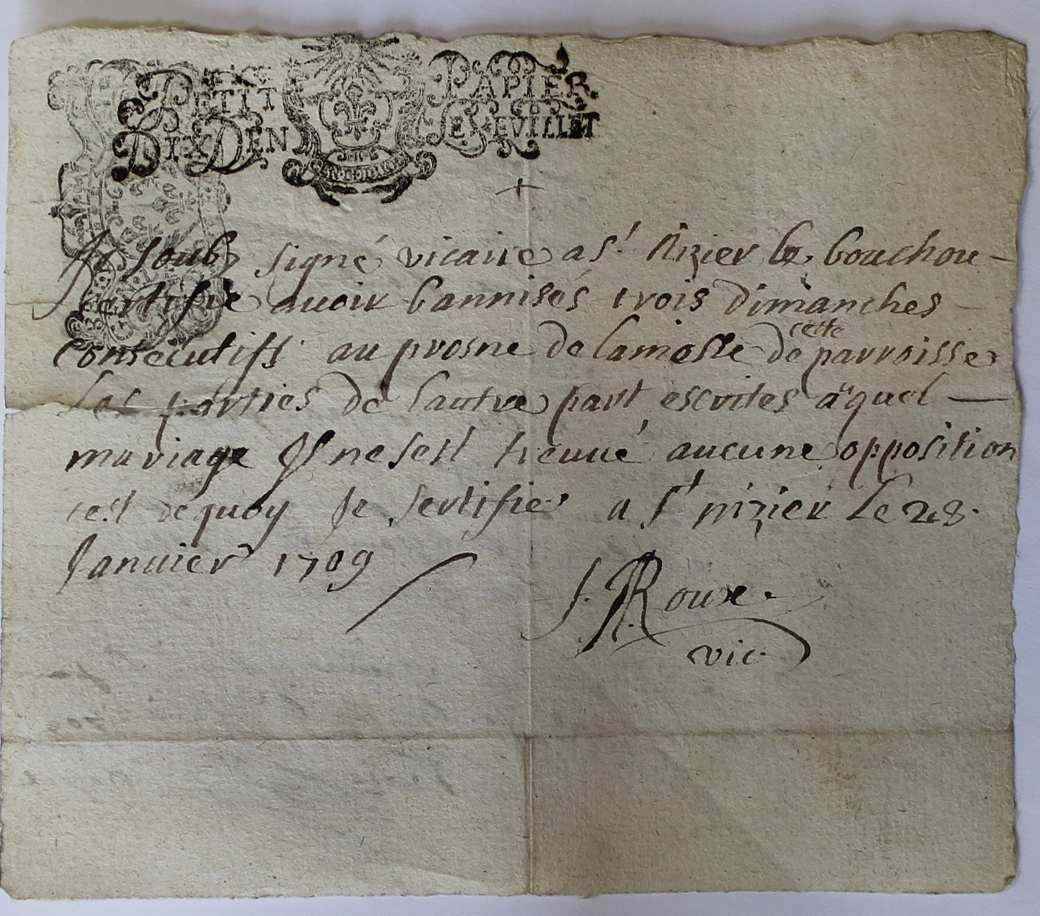 PETIT PAPIER.
DIX DEN LE FEUILLET
+
Je soubz signé vicaire a St Nizier le bouchou –
certifie auoir bannisés trois dimanches
consecutifs au prosne de lamesse de cette parroisse
Les parties de lautre part escrites a quel —
mariage Il ne sest treuué aucune opposition
cest de quoy Je sertifie a St nizier Le 28.
Januier 1709
Roux
vic.